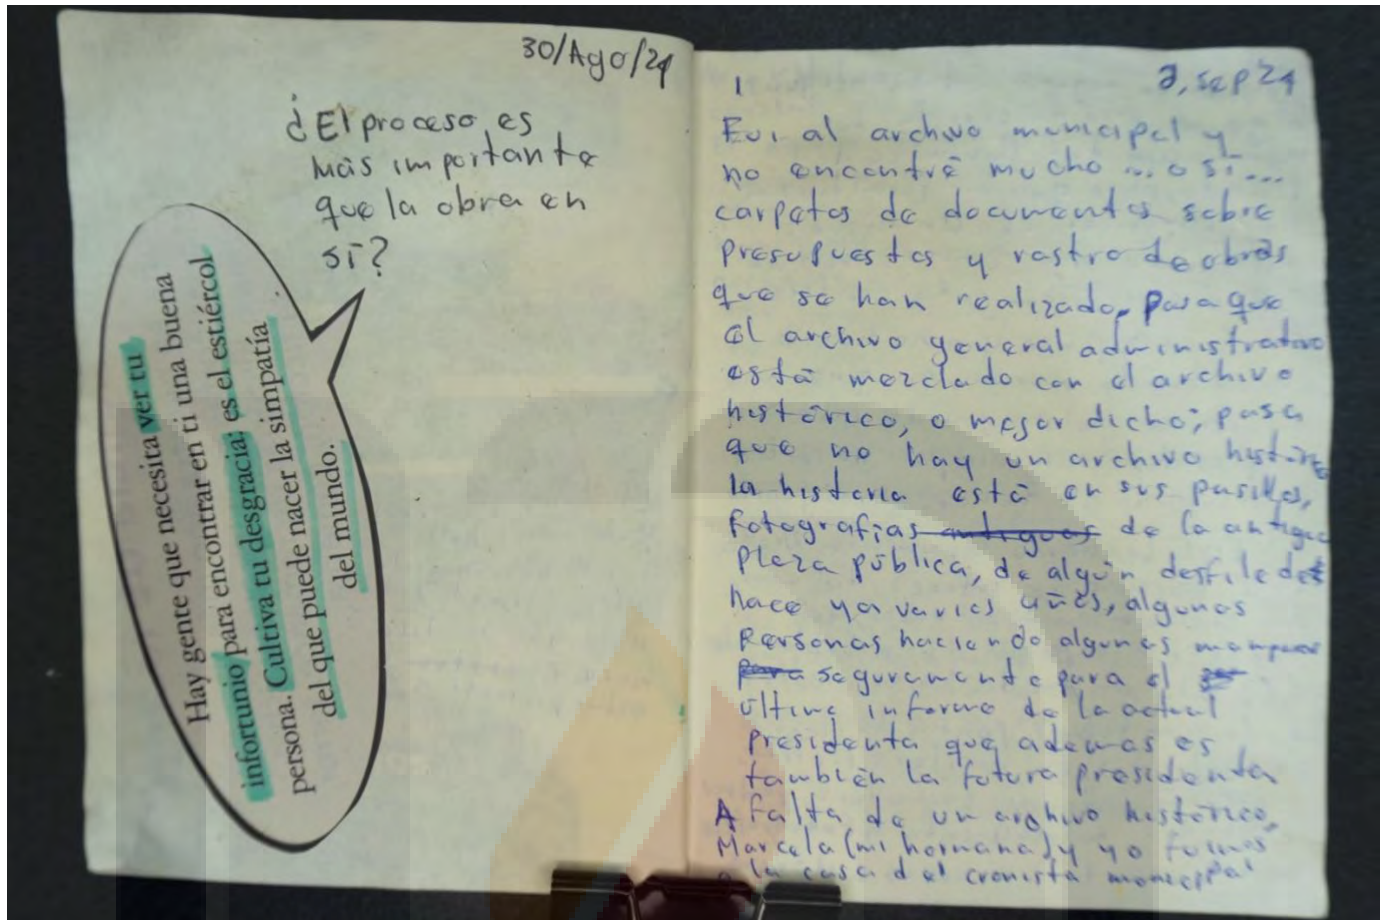 30/Ago/24
¿El proceso es
más importante
que la obra en
sí?
Hay gente que necesita ver tu
infortunio para encontrar en ti una buena
persona. Cultiva tu desgracia; es el estiércol
del que puede nacer la simpatía
del mundo.
2, sep 24
1
Fui al archivo municipal y
no encontré mucho ... o sí ...
carpetas de documentos sobre
presupuestos y rastro de obras
que se han realizado, pasa que
el archivo general administrativo
está mezclado con el archivo
histórico, o mejor dicho; pasa
que no hay un archivo histórico
la historia está en sus pasillos,
fotografías antiguas de la antigua
plaza pública, de algún desfile de
hace ya varios años, algunas
personas haciendo algunas mamparas
para seguramente para el
último informe de la actual
presidenta que además es
también la futura presidenta
A falta de un archivo histórico,
Marcela (mi hermana) y yo fuimos
a la casa del cronista municipal